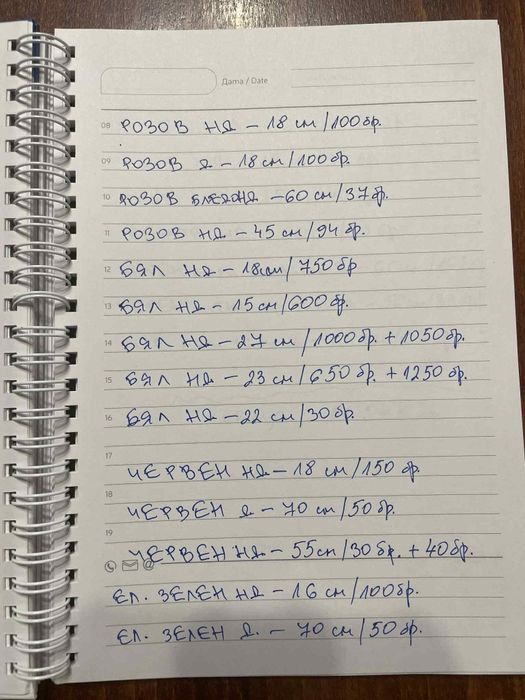 Дата / Date
08 РОЗОВ НД – 18 см/100бр.
09 РОЗОВ Д – 18 см/100 бр.
10 РОЗОВ БЛЕДОНД – 60 см/37бр.
11 РОЗОВ НД – 45 см/94 бр.
12 БЯЛ НД – 18см/750бр
13 БЯЛ НД – 15 см/600бр.
14 БЯЛ НД – 27 см/1000бр. + 1050 бр.
15 БЯЛ НД – 23 см/650бр. + 1250 бр.
16 БЯЛ НД – 22 см/30 бр.
17
ЧЕРВЕН НД – 18 см/150 бр.
18
ЧЕРВЕН Д – 70 см/50 бр.
19
ЧЕРВЕН НД – 55см/30бр. + 40бр.
ЕЛ. ЗЕЛЕН НД – 16 см/100бр.
ЕЛ. ЗЕЛЕН Д. – 70 см/50 бр.